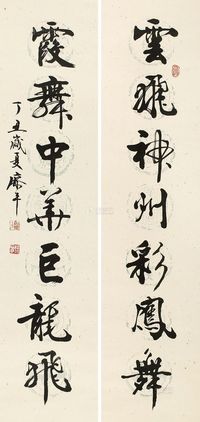 雲飛神州彩鳳舞
霞舞中華巨龍飛
丁丑歲夏平